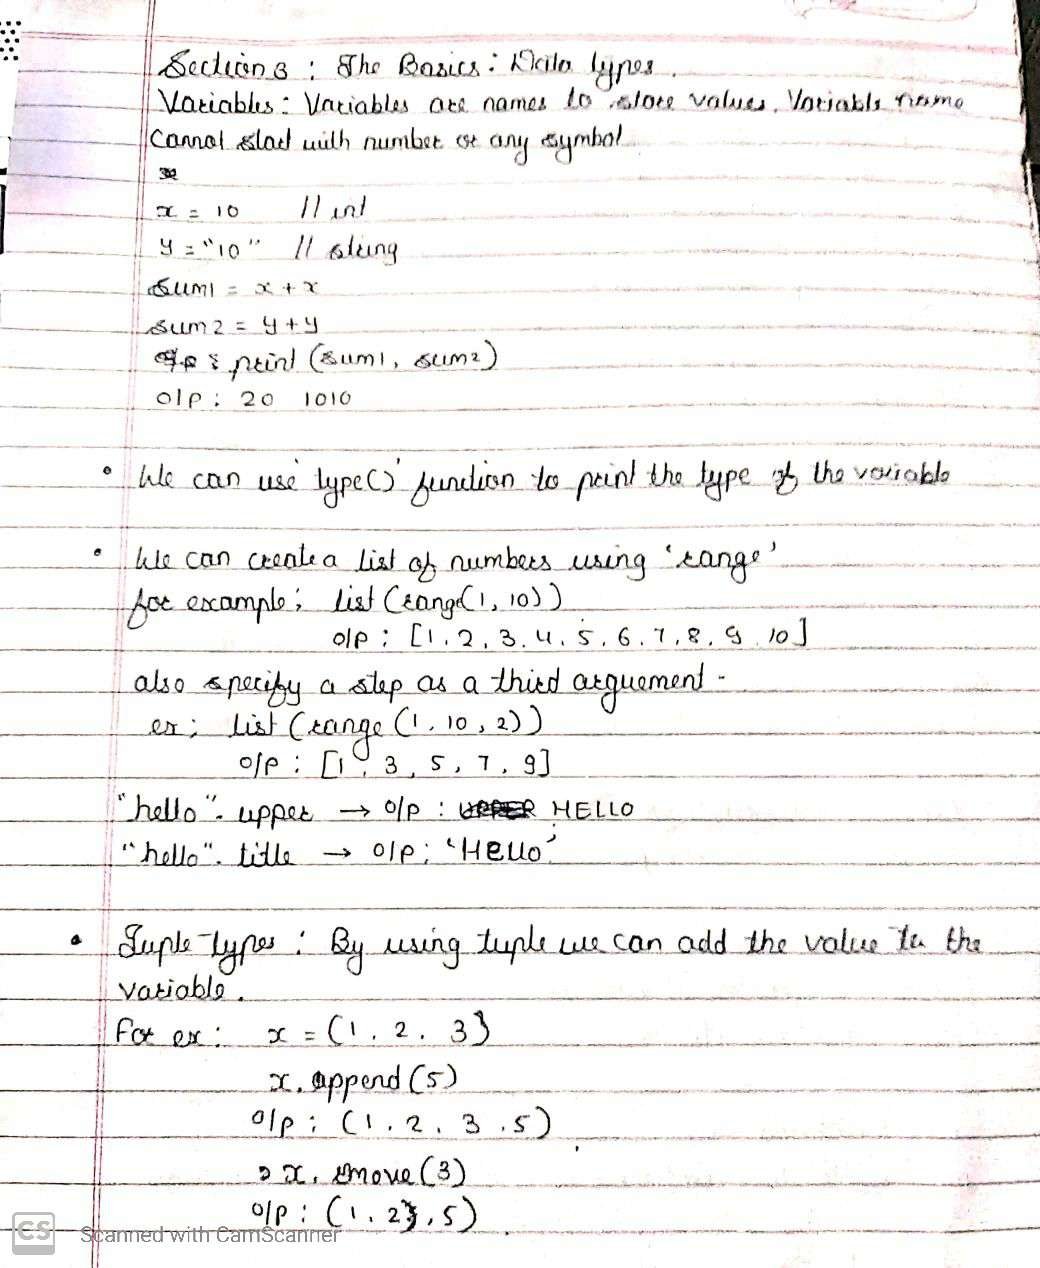 Section 3 : The Basics : Data types.
Variables : Variables are names to store values. Variable name
Cannot start with number or any symbol
x = 10 // int
y = "10" // string
sum1 = x + x
sum2 = y + y
print (sum1, sum2)
o/p : 20 1010
• We can use 'type()' function to print the type of the variable
• We can create a list of numbers using 'range'
for example; list (range(1, 10))
o/p : [1, 2, 3, 4, 5, 6, 7, 8, 9, 10]
also specify a step as a third arguement -
ex; list (range (1, 10, 2))
o/p : [1, 3, 5, 7, 9]
"hello". upper → o/p : HELLO
"hello". title → o/p; 'Hello'
• Tuple-types : By using tuple we can add the value to the
variable.
For ex : x = (1, 2, 3)
x. append (5)
o/p : (1, 2, 3, 5)
x. (3)
o/p : (1, 2, 5)
CS Scanned with CamScanner